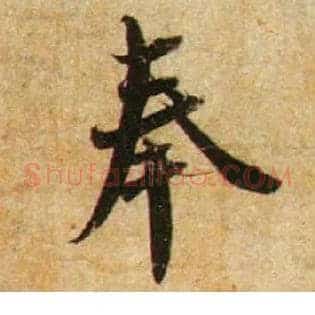 奉
shufazidian.com